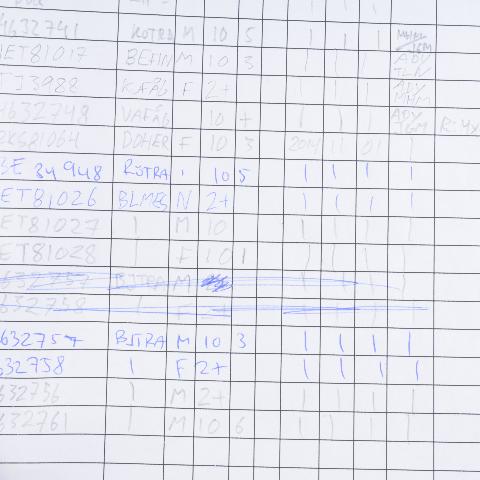 4632741 KOTRA M 10 5 | | | MHM/TGM
ET81017 BEFIN M 10 3 | | | ADV TLN
TJ3988 F 2+ | | | ADV MHM
4632748 VAFÅG 10 + | | | ADV TGM
81064 DOHER F 10 3 2014 11 01 |
34948 RÖTRA 1 10 5 | | | |
ET81026 BLMES N 2+ | | | |
ET81027 | M 10 | | | |
ET81028 | F 10 1 | | | |
632757 BJTRA M
632758 |
632757 BJTRA M 10 3 | | | |
632758 | F 2+ | | | |
632756 | M 2+ | | | |
632761 | M 10 6 | | | |